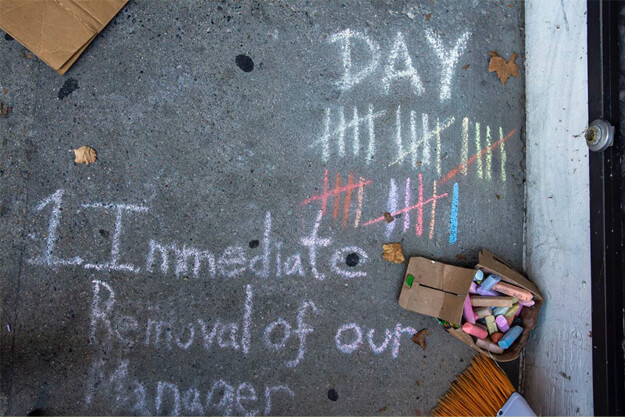 DAY
1 Immediate
Removal of our
Manager